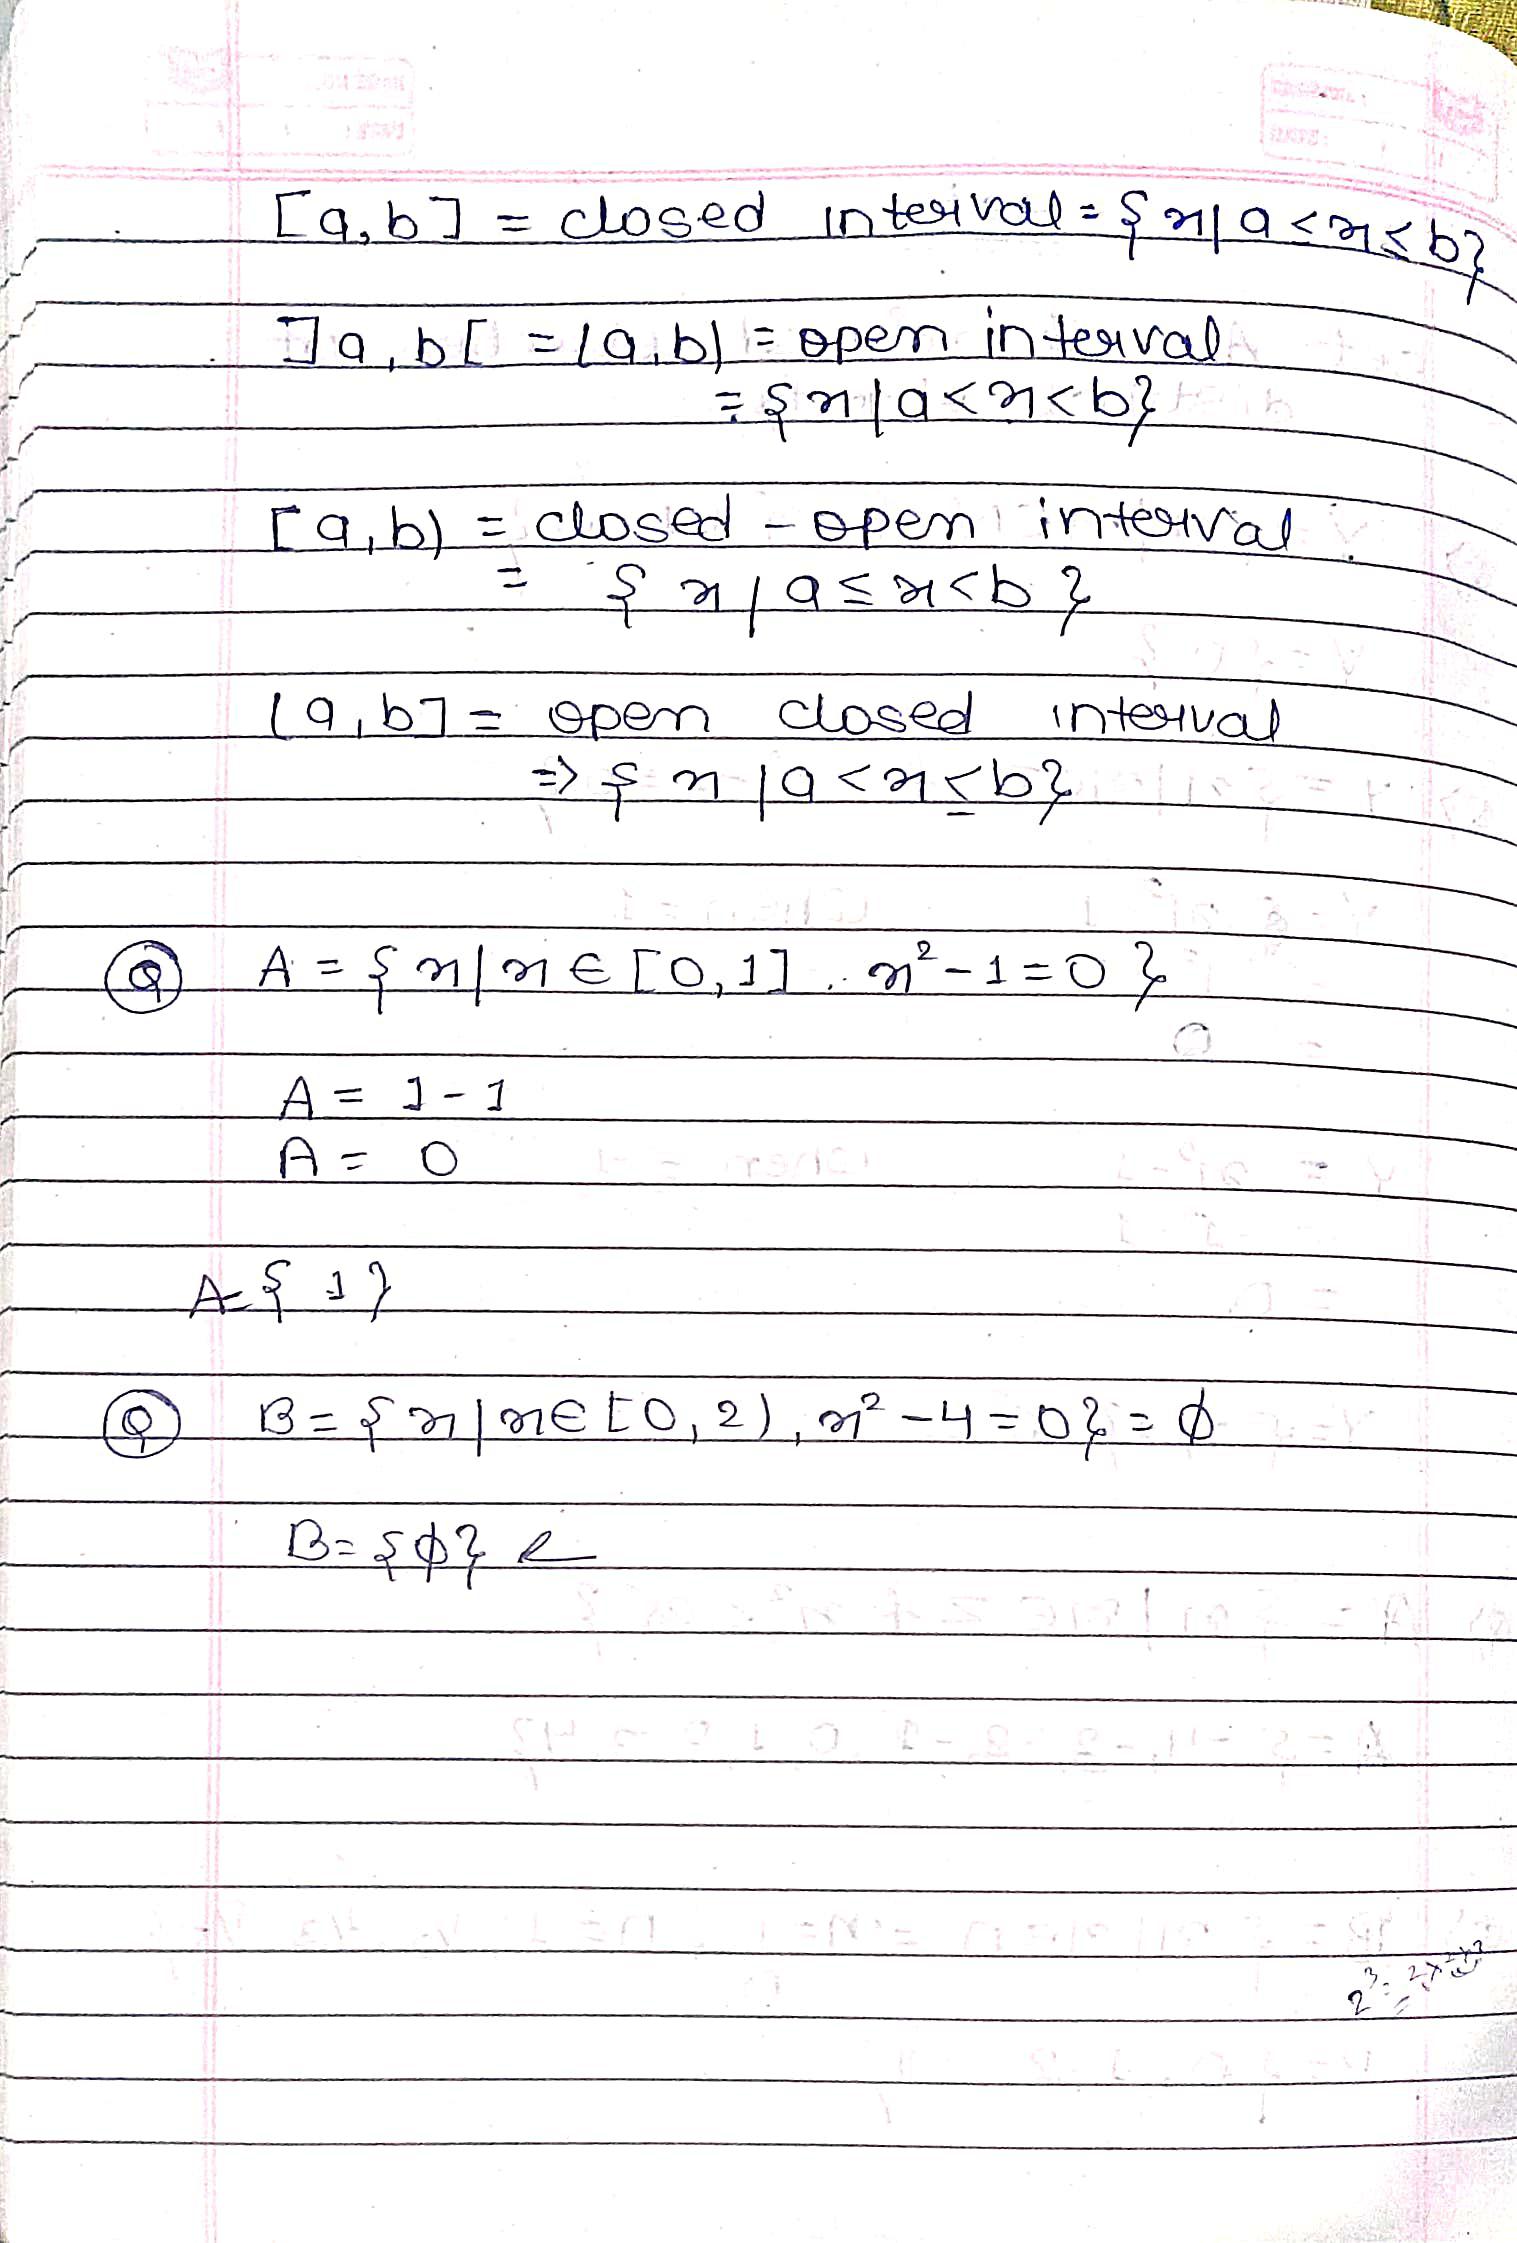 [a,b] = closed interval = {x|a<x≤b}
]a,b[ = (a,b) = open interval
= {x|a<x<b}
[a,b) = closed - open interval
= {x|a≤x<b}
(a,b] = open closed interval
=> {x|a<x≤b}
Q A = {x|x∈[0,1], x²-1=0}
A = 1-1
A = 0
A={1}
Q B={x|x∈[0,2), x²-4=0}=ϕ
B={ϕ}